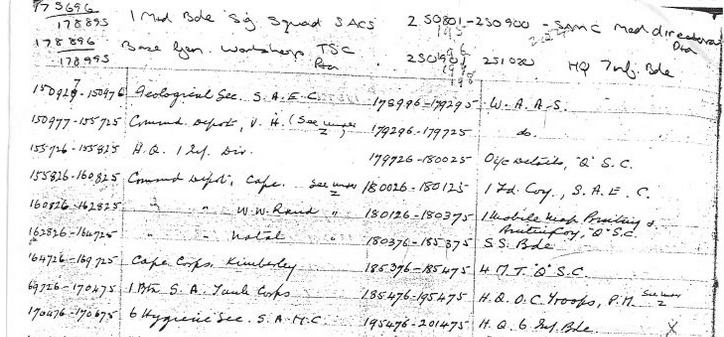 178895 1 Med Bde Sig Squad SACS 250801-250900 - SAMC Med
178896
178995 Base Gen. Workshop TSC 251000 HQ 7 Inf. Bde
150927-150976 Geological Sec. S.A.E.C. 178996-179295 W.A.A.S.
150977-155725 Command Depot, V.H. (See under Z) 179296-179725 do.
155726-155825 H.Q. 1 Inf. Div. 179726-180025 O i/c Details, "Q" S.C.
155826-160825 Command Depot, Cape. See under Z 180026-180125 1 Fd. Coy., S.A.E.C.
160826-162825 " " W.W. Rand " 180126-180375 1 Mobile "Q" S.C.
162826-164725 " " Natal " 180376-185375 S.S. Bde
164726-169725 Cape Corps, Kimberley 185376-185475 4 M.T. "Q" S.C
69726-170475 1 Btn S.A. Tank Corps 185476-195475 H.Q. O.C. Troops, P.M. See under Z
170476-170675 6 Hygiene Sec. S.A.M.C. 195476-201475 H.Q. 6 Inf. Bde. X